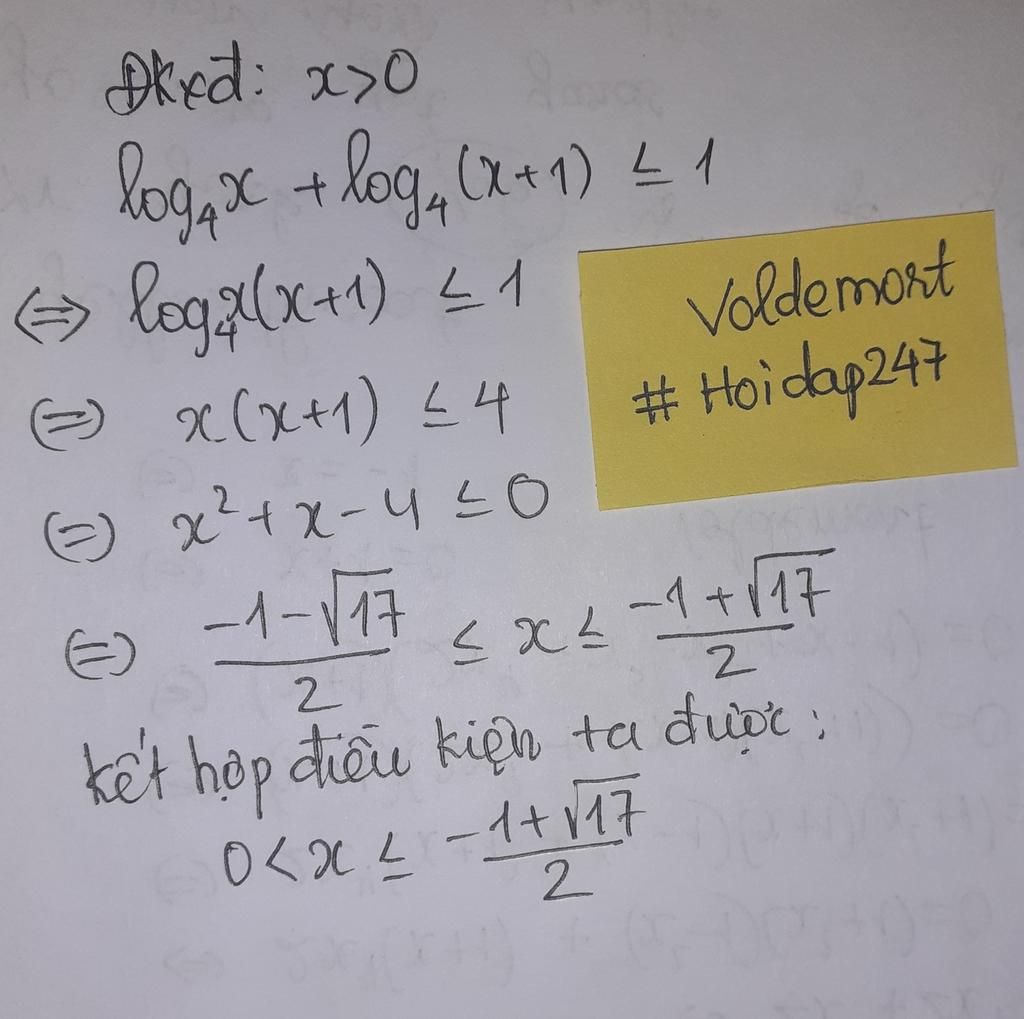 Đkxđ: x>0
log₄x + log₄(x+1) ≤ 1
⇔ log₄x(x+1) ≤ 1
⇔ x(x+1) ≤ 4
⇔ x² + x - 4 ≤ 0
⇔ (-1-√17)/2 ≤ x ≤ (-1+√17)/2
kết hợp điều kiện ta được:
0 < x ≤ (-1+√17)/2
Voldemort
# Hoidap247